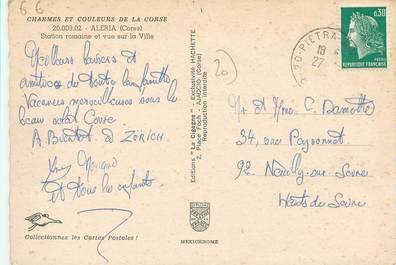 66
CHARMES ET COULEURS DE LA CORSE
20.009.02 - ALERIA (Corse)
Station romaine et vue sur la Ville
Meilleurs baisers et
amitiés de toute la
Vacances merveilleuses sous le
beau soleil Corse.
A Bientôt à ZÜRICH
et tous les enfants.
Collectionnez les Cartes Postales !
Editions "La Cigogne" - Exclusivité HACHETTE
2, Place Foch - AJACCIO (Corse)
Reproduction interdite
MEXICHROME
20
PIETRA
19
27
0,30
POSTES
REPUBLIQUE FRANÇAISE
Mr et Mme C.
34, rue
92. Neuilly-sur-Seine
Hauts de Seine